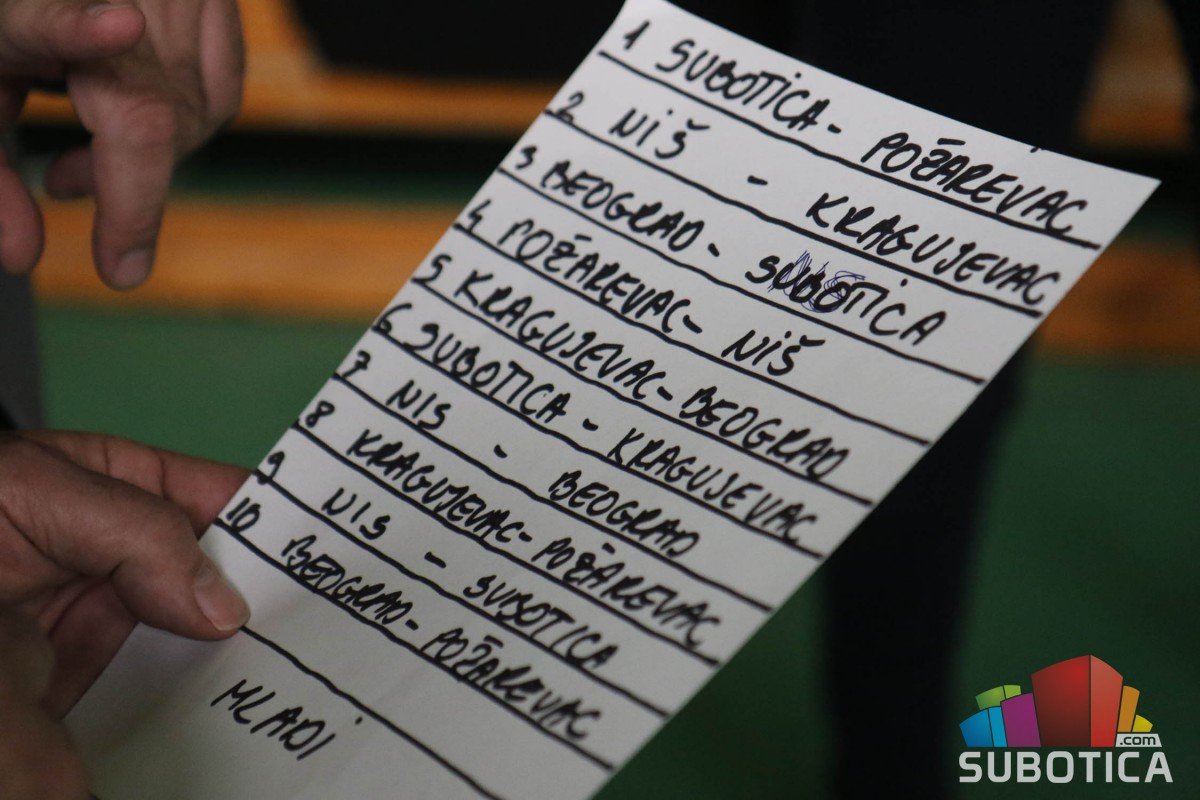 1 SUBOTICA - POŽAREVAC
2 NIŠ - KRAGUJEVAC
3 BEOGRAD - SUBOTICA
4 POŽAREVAC - NIŠ
5 KRAGUJEVAC - BEOGRAD
6 SUBOTICA - KRAGUJEVAC
7 NIS - BEOGRAD
8 KRAGUJEVAC - POŽAREVAC
9 NIS - SUBOTICA
10 BEOGRAD - POŽAREVAC
MLADI
.com
SUBOTICA